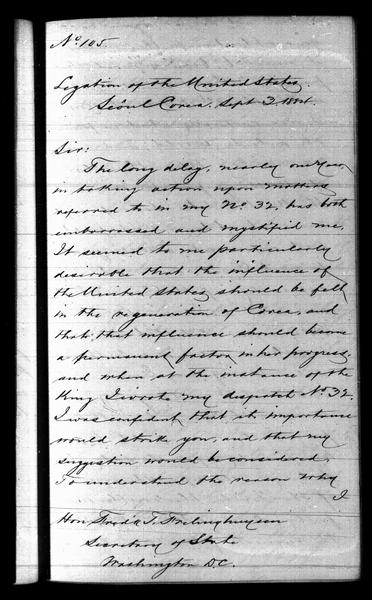 No. 105.
Legation of the United States.
Seoul Corea. Sept 3. 1884.
Sir:
The long delay, nearly one year,
in taking action upon matters
referred to in my No 32, has both
embarrassed and mystified me.
It seemed to me particularly
desirable that the influence of
the United States should be felt
in the regeneration of Corea, and
that that influence should become
a permanent factor in her progress,
and when at the instance of the
King I wrote my despatch No 32,
I was confident that its importance
would strike you, and that my
suggestion would be considered.
To understand the reason why
I
Hon. Fred'k T. Frelinghuysen
Secretary of State
Washington D.C.